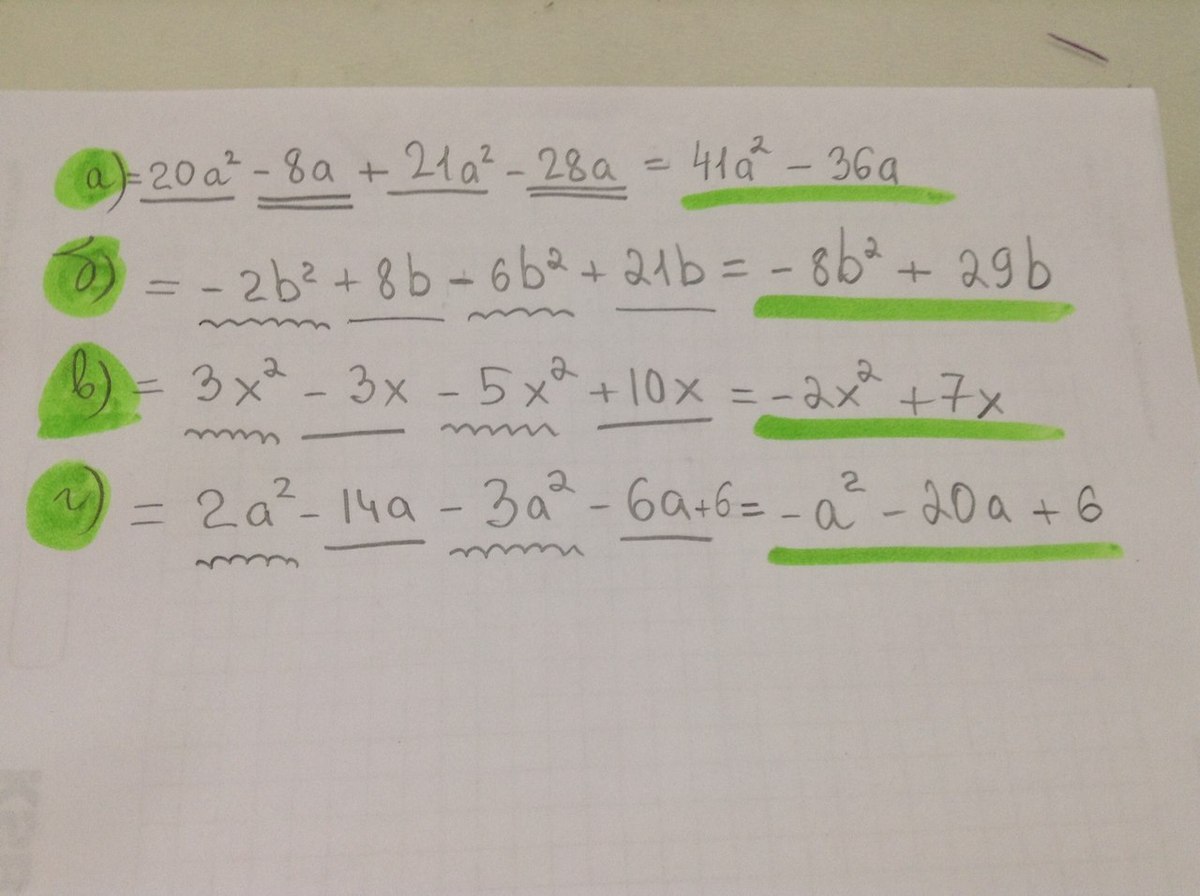 а) = 20a² - 8a + 21a² - 28a = 41a² - 36a
б) = - 2b² + 8b - 6b² + 21b = - 8b² + 29b
в) = 3x² - 3x - 5x² + 10x = - 2x² + 7x
г) = 2a² - 14a - 3a² - 6a + 6 = - a² - 20a + 6